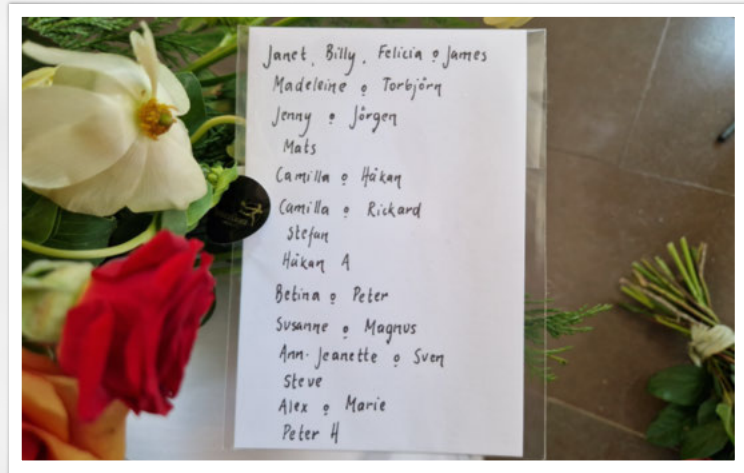 Janet, Billy, Felicia o James
Madeleine o Torbjörn
Jenny o Jörgen
Mats
Camilla o Håkan
Camilla o Rickard
Stefan
Håkan A
Betina o Peter
Susanne o Magnus
Ann-Jeanette o Sven
Steve
Alex o Marie
Peter H